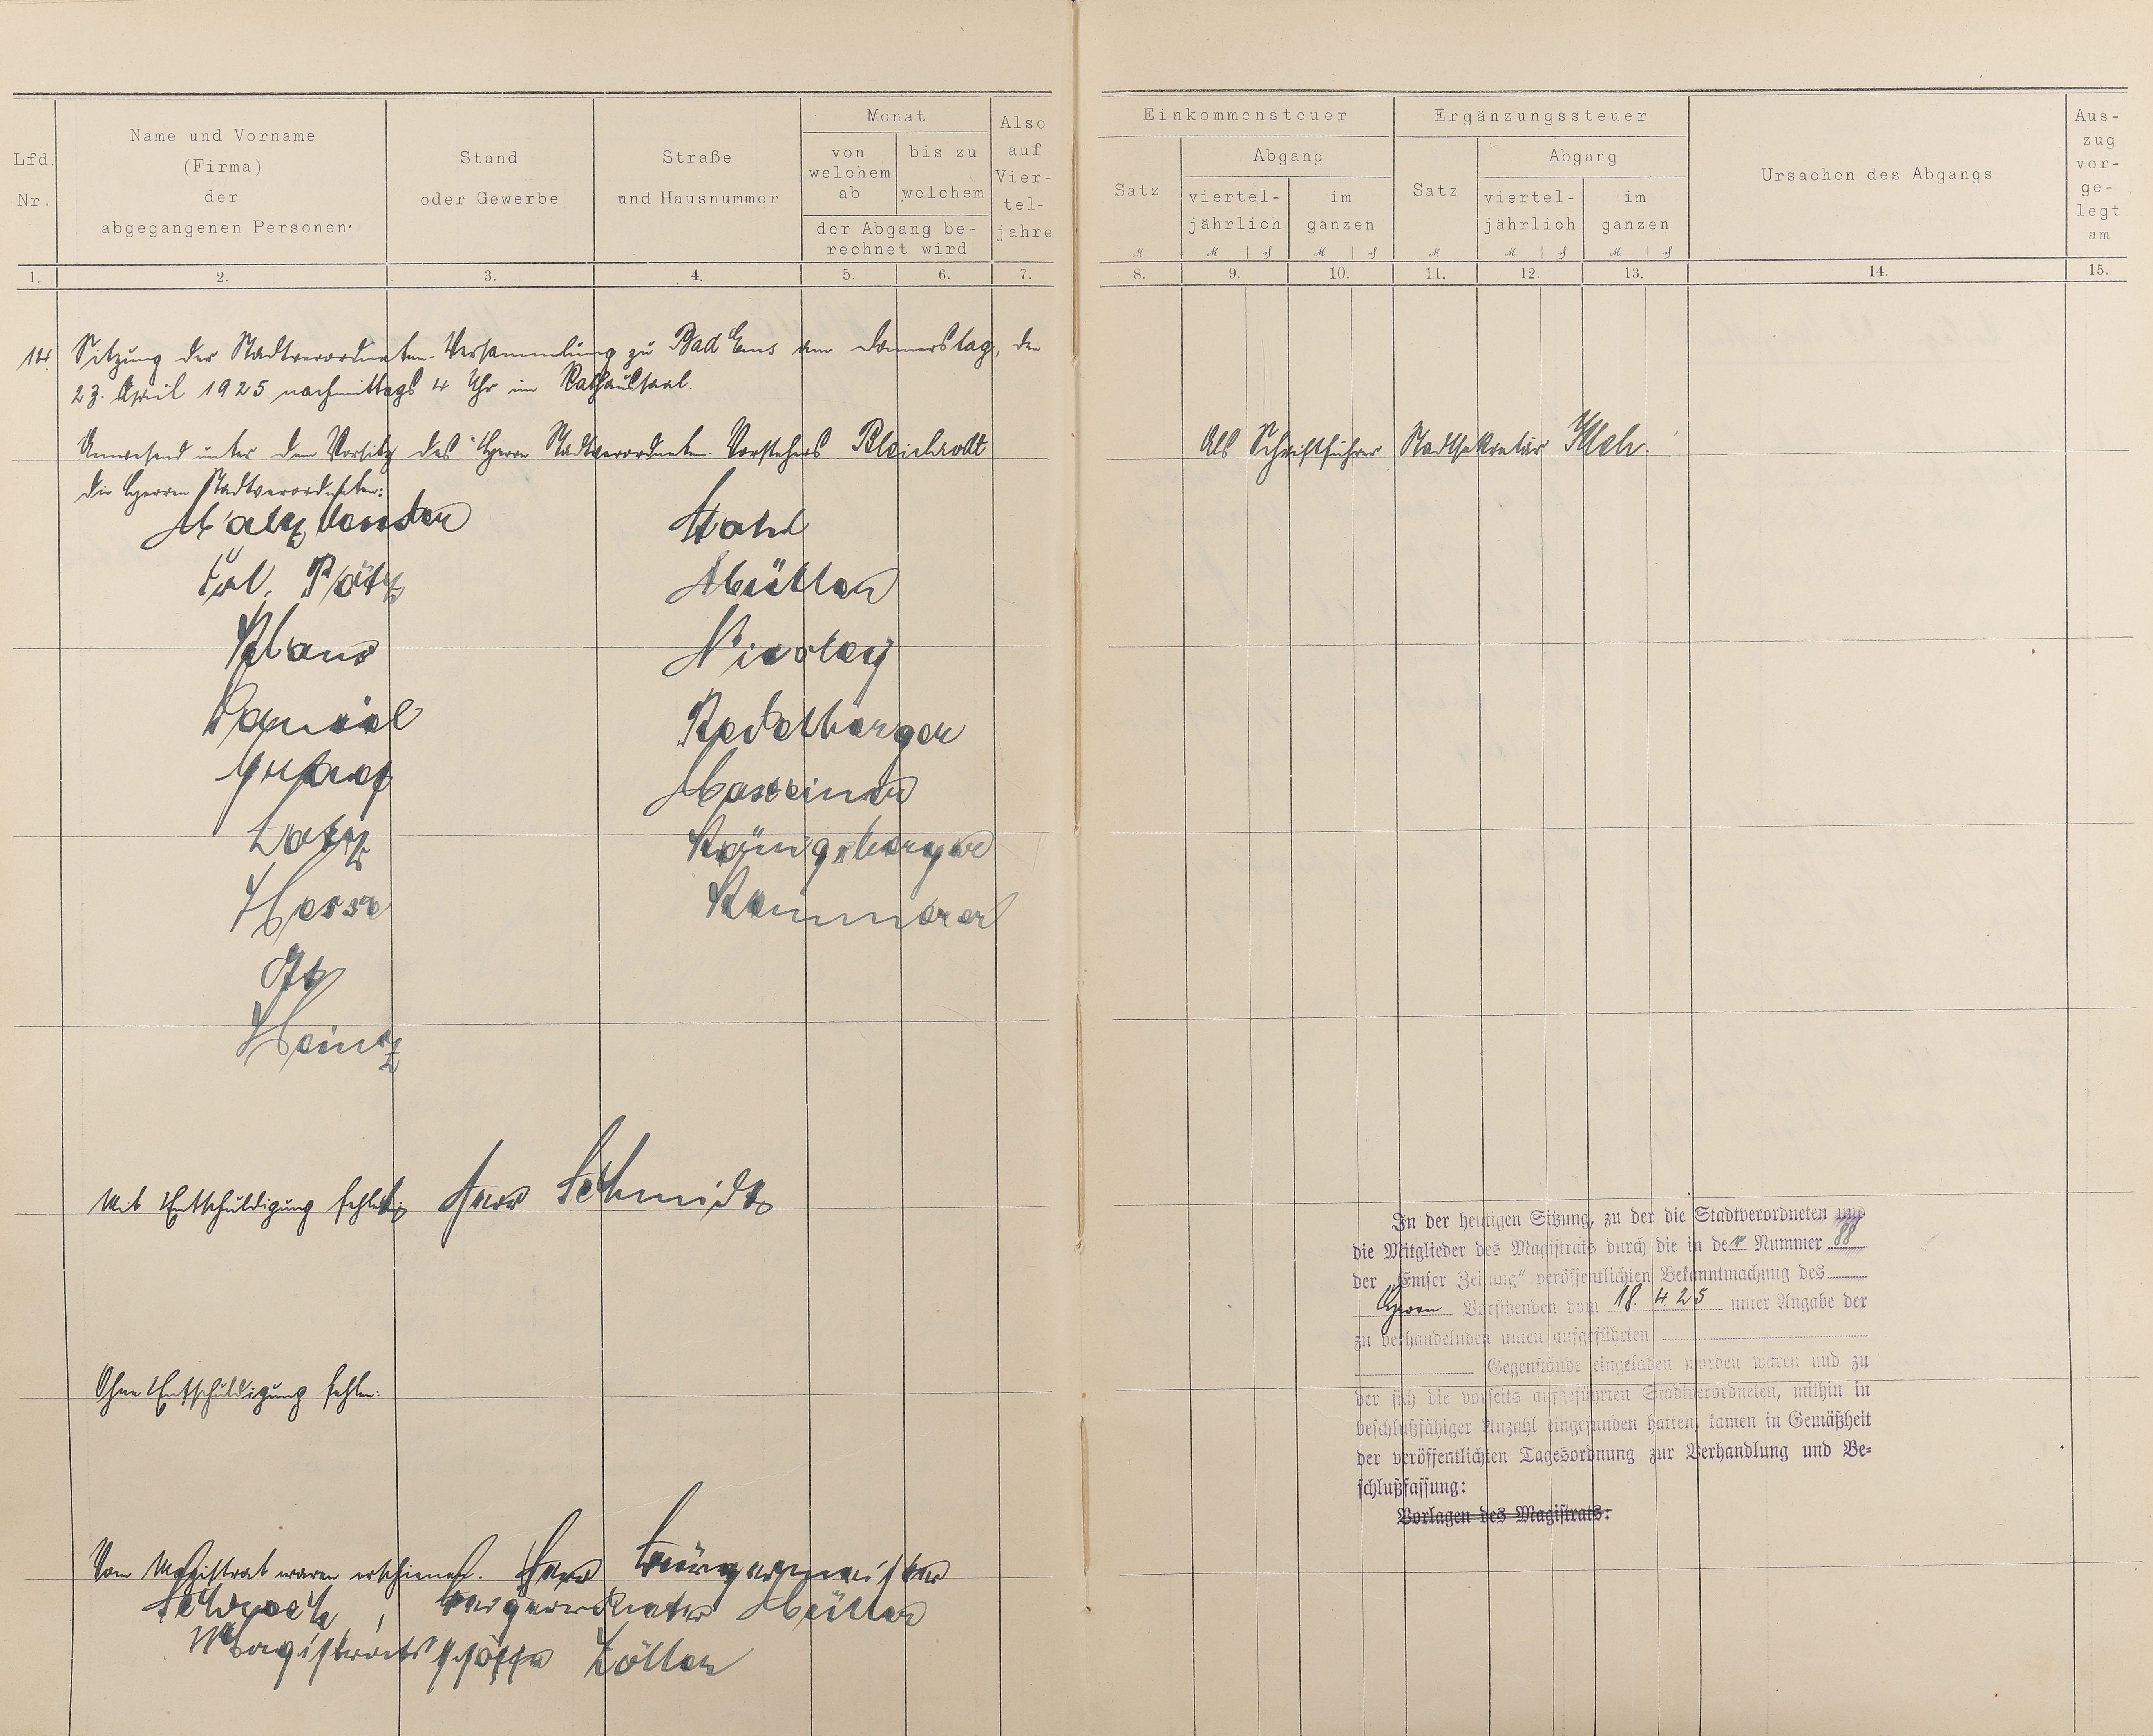 Lfd. Nr.
Name und Vorname
(Firma)
der
abgegangenen Personen.
Stand
oder Gewerbe
Straße
und Hausnummer
Monat
von welchem ab
bis zu welchem
der Abgang be-
rechnet wird
Also auf Vier-tel-jahre
1. 2. 3. 4. 5. 6. 7.
14. Sitzung der Stadtverordneten-Versammlung zu Bad Ems am Donnerstag, den
23. April 1925 nachmittags 4 Uhr im Rathaussaal.
Anwesend unter dem Vorsitz des Herrn Stadtverordneten-Vorstehers Bleichrodt
die Herren Stadtverordneten:
Frl.
Klaus
Lotz
Hess
Heinz
Müller
Nicolay
Redelberger
Königsberger
Kemmerer
Mit Entschuldigung fehlt: Herr Schmidt
Ohne Entschuldigung fehlen:
Vom Magistrat waren erschienen: Herr Bürgermeister
Beigeordneter Müller
Magistratsschöffe Zöller
Einkommensteuer
Satz
Abgang
viertel-
jährlich
im
ganzen
Ergänzungssteuer
Satz
Abgang
viertel-
jährlich
im
ganzen
Ursachen des Abgangs
Aus-
zug
vor-
ge-
legt
am
8. 9. 10. 11. 12. 13. 14. 15.
Als Schriftführer Stadtsekretär
In der heutigen Sitzung, zu der die Stadtverordneten und
die Mitglieder des Magistrats durch die in der Nummer 88
der „Emser Zeitung" veröffentlichten Bekanntmachung des
Herrn Vorsitzenden vom 18. 4. 25 unter Angabe der
zu verhandelnden unten aufgeführten
Gegenstände eingeladen worden waren und zu
der sich die vorseits aufgeführten Stadtverordneten, mithin in
beschlußfähiger Anzahl eingefunden hatten, kamen in Gemäßheit
der veröffentlichten Tagesordnung zur Verhandlung und Be-
schlußfassung:
Vorlagen des Magistrats: